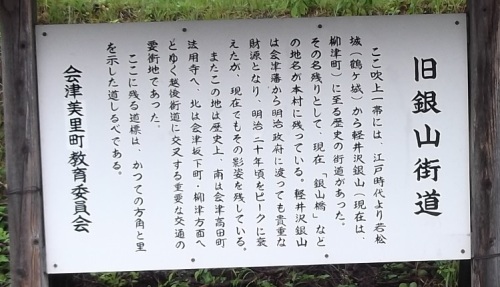 旧銀山街道
ここ吹上一帯には、江戸時代より若松
城（鶴ケ城）から軽井沢銀山（現在は
柳津町）に至る歴史の街道があった。
その名残りとして、現在「銀山橋」など
の地名が本村に残っている。軽井沢銀山
は会津藩から明治政府に渡っても貴重な
財源となり、明治二十年頃をピークに衰
えたが、現在でもその影姿を残している。
またこの地は歴史上、南は会津高田町
法用寺へ、北は会津坂下町・柳津方面へ
とゆく越後街道に交叉する重要な交通の
要衝地であった。
ここに残る道標は、かつての方角と里
を示した道しるべである。
会津美里町教育委員会